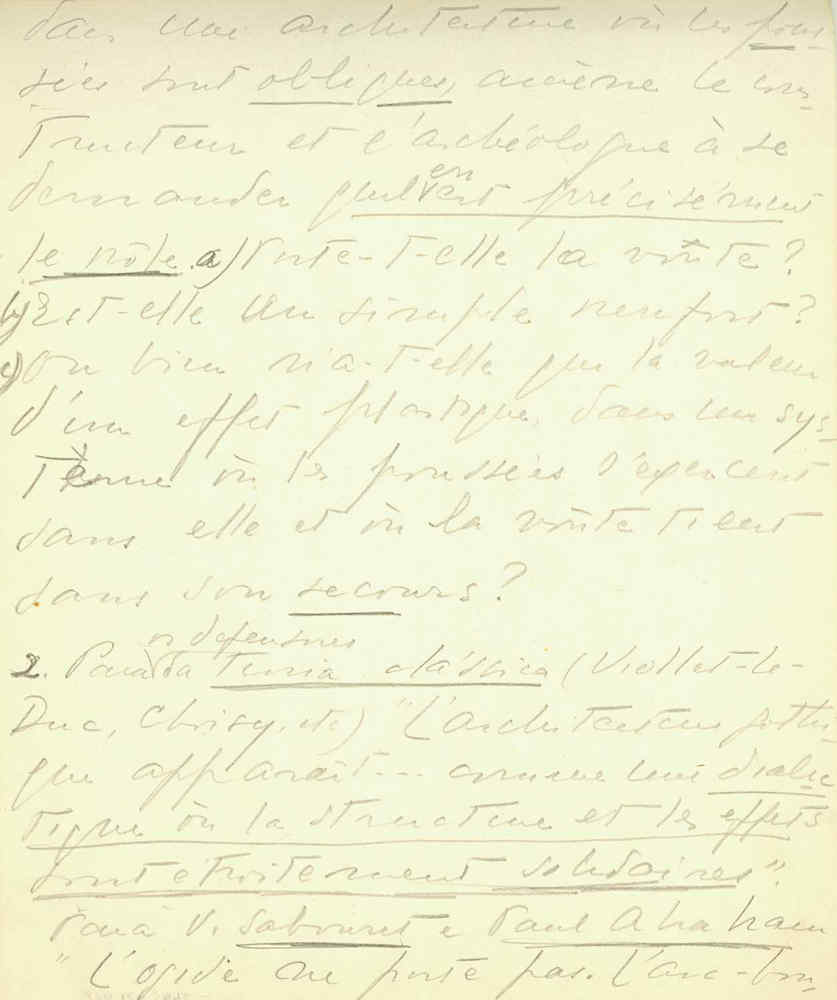 dans une architecture où les pous-
sées sont obliques, amène le cons-
tructeur et l'archéologue à se
demander quel en est précisément
le rôle. a) Porte-t-elle la voûte?
b) Est-elle un simple renfort?
c) Ou bien n'a-t-elle que la valeur
d'un effet plastique, dans un sys-
tème où les poussées s'exercent
sans elle et où la voûte tient
sans son secours?
os defensores
2. Para da teoria clássica (Viollet-le-
Duc, Choisy, etc) "L'architecture gothi-
que apparaît... comme une dialec
tique où la structure et les effets
sont étroitement solidaires".
Para V. Sabouret e Paul Abraham
"L'ogive ne porte pas. L'arc-bou-